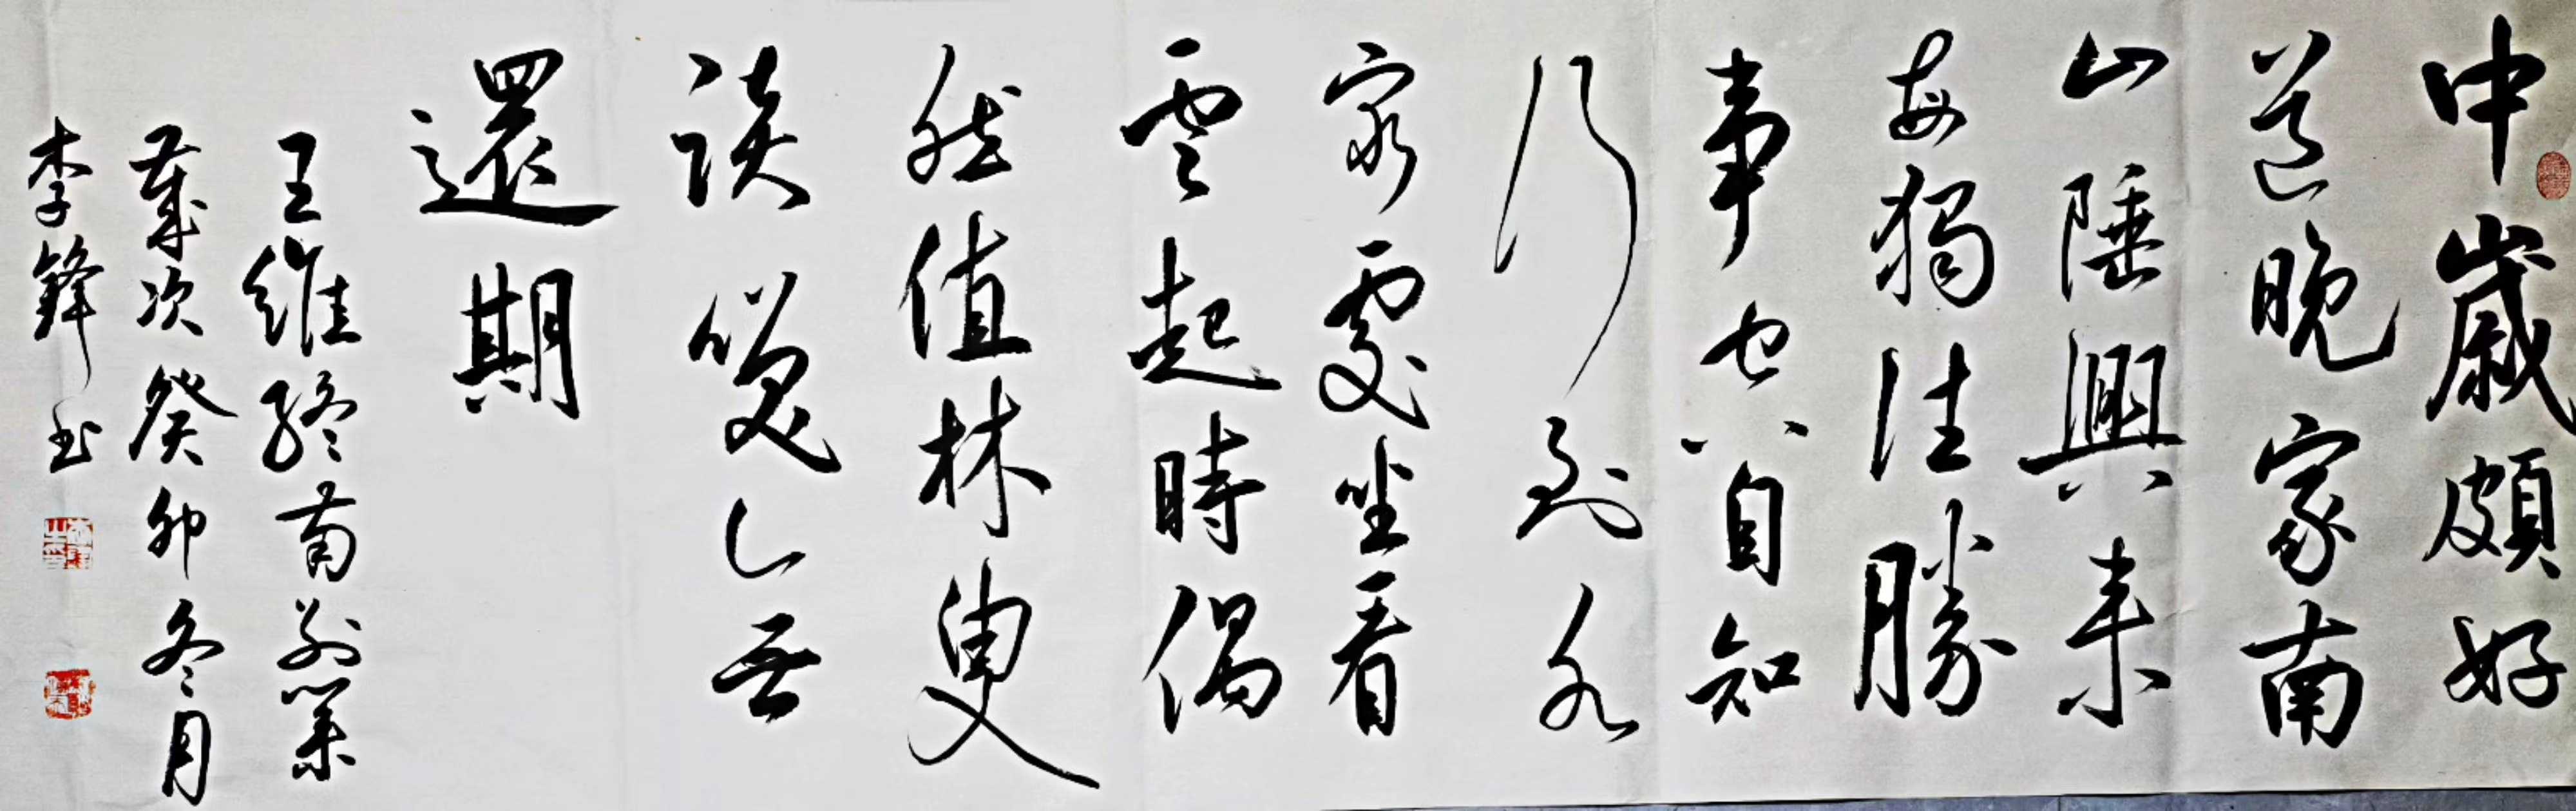 中歲頗好
道晚家南
山陲興来
每獨往勝
事空自知
行到水
窮處坐看
雲起時偶
然值林叟
談笑乙无
還期
王維終南別業
歲次癸卯冬月
李鋒书